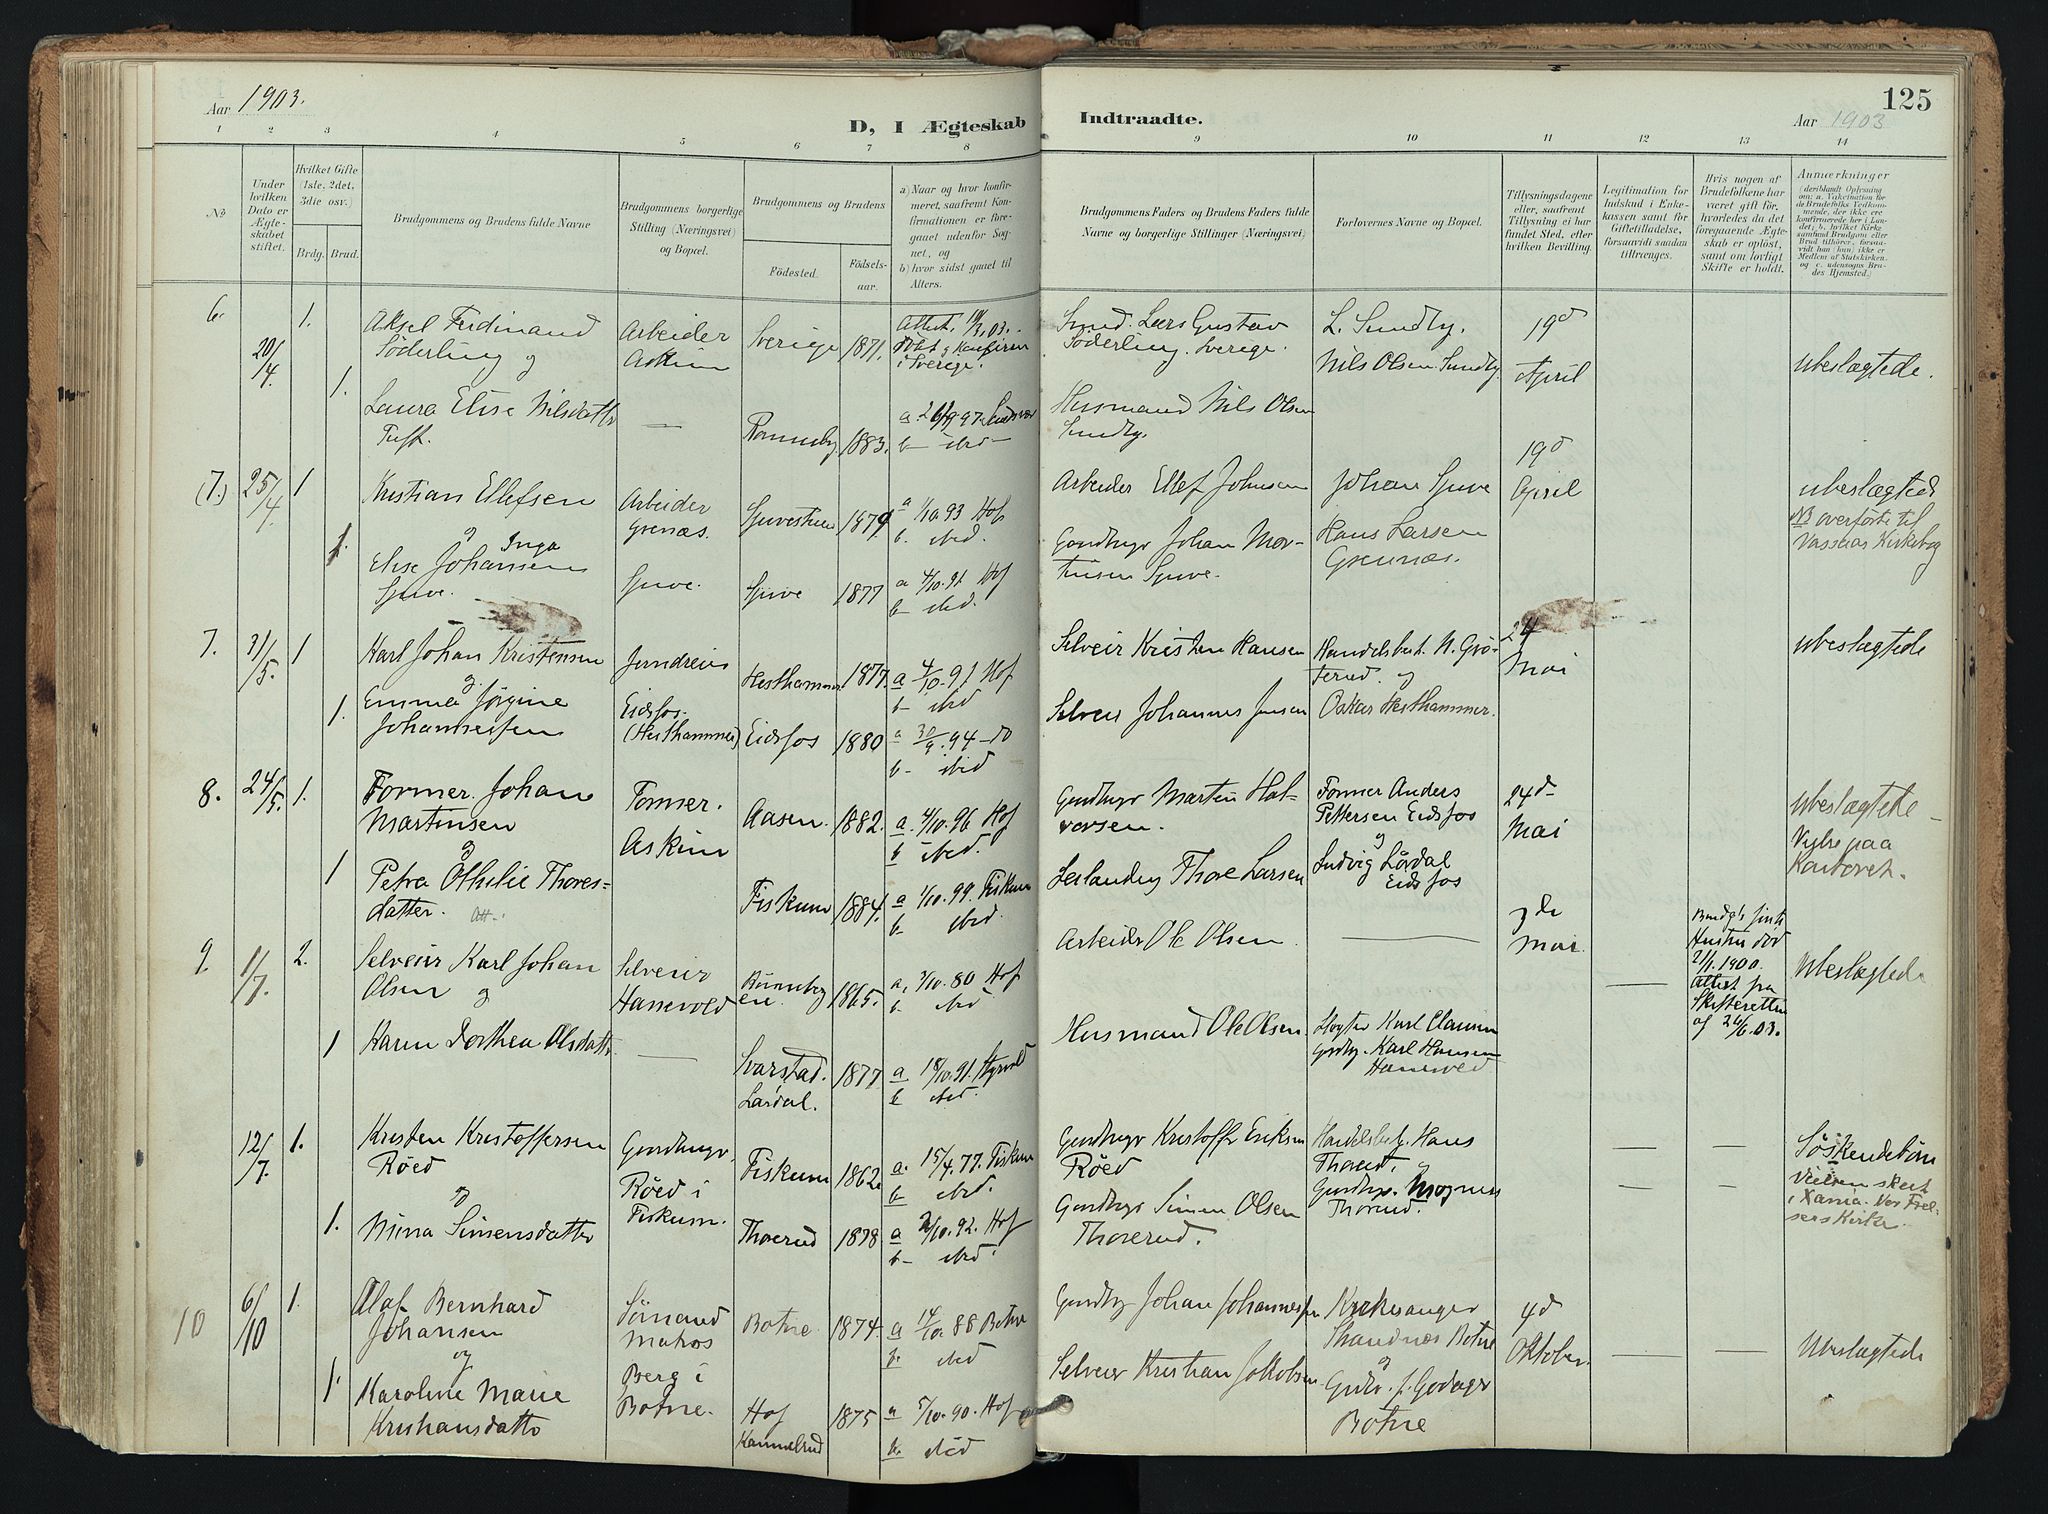 Aar 1903.
D, I Ægteskab
Indtraadte.
Aar 1903
125
1 2 3 4 5 6 7 8 9 10 11 12 13 14
No
Under
hvilken
Dato er
Ægte-
skabet
stiftet.
Hvilket Gifte
(1ste, 2det,
3die osv.)
Brdg. Brud.
Brudgommens og Brudens fulde Navne
Brudgommens borgerlige
Stilling (Næringsvei)
og Bopæl.
Brudgommens og Brudens
Födested.
Födsels-
aar.
a) Naar og hvor konfir-
meret, saafremt Kon-
firmationen er fore-
gaaet udenfor Sog-
net, og
b) hvor sidst gaaet til
Alters.
Brudgommens Faders og Brudens Faders fulde
Navne og borgerlige Stillinger (Næringsvei)
Forlovernes Navne og Bopæl.
Tillysningsdagene
eller, saafremt
Tillysning ei har
fundet Sted, efter
hvilken Bevilling.
Legitimation for
Indskud i Enke-
kassen samt for
Giftetilladelse,
forsaavidt saadan
tiltrænges.
Hvis nogen af
Brudefolkene har
været gift før,
hvorledes da det
foregaaende Ægte-
skab er oplöst,
samt om lovligt
Skifte er holdt.
Anmærkninger
6. 20/4 1.
Aksel Ferdinand
Söderling og
Arbeider
Askim
Sverige 1871.
Attest 03.
i Sverige.
Lars Gustav
Söderling. Sverige.
L. Sundby.
Nils Olsen Sundby.
19d
April
Ubeslægtede.
1.
Laura Elise Nilsdatter
Tuft.
—
1883.
b – ibid –
Husmand Nils Olsen
Sundby.
(7.) 25/4 1
Kristian Ellefsen
og
Arbeider
Grenæs.
1879
a 1/10.93 Hof
b. ibid.
Arbeider Ellef Johnsen
Johan Sjuve
19d
April
Ubeslægtede
NB overførte til
Vassaas Kirkebog
1.
Elise Inga Johansen
Sjuve.
Sjuve.
Sjuve 1877
a 4/10.91 Hof
b – ibid.
Gaardbrgr Johan Mor-
tensen Sjuve.
Hans Larsen
Grennæs.
7. 31/5 1
Karl Johan Kristensen
og
Jerndreier
Eidsfos.
(Hesthammer)
Hesthammer 1877.
a 4/10.91 Hof
b – ibid
Selveier Kristen Hansen
Handelsbest. N. Grö-
terud. og
24
Mai
Ubeslægtede
1.
Emma Jørgine
Johannesen
Eidsfos 1880
a 30/9.94 – do
b – ibid
Selveier Johannes Jensen
Oskar Hesthammer.
8. 24/5. 1.
Former Johan
Martinsen
og
Former.
Askim
Aasen. 1882.
a. 4/10.96 Hof
b ibid.
Gaardbrgr Martin Hal-
vorsen.
Former Anders
Pettersen Eidsfos
og
24d
Mai
Ubeslægtede –
Vielse paa
Kontoret.
1
Petra Othilie Thores-
datter. Att.
Fiskum 1884.
a 1/10.99. Fiskum
b ibid.
Thore Larsen
Ludvig Lördal
Eidsfos
9. 1/7 2.
Selveier Karl Johan
Olsen og
Selveier
Hanevold
1865.
a, 3/10.80 Hof
b. ibid
Arbeider Ole Olsen.
—
de
Mai
—
Brudg's første
Hustru död
2/1.1900.
Attest fra
Skifteretten
af 26/6.03.
Ubeslægtede
1
Karen Dorthea Olsdatter
—
Svarstad.
Lardal.
1877
a 18/10.91.
b ibid.
Husmand Ole Olsen
Slagter Karl Clausen
Grdbr. Karl Hansen
Hanevold
12/7 1.
Kristen Kristoffersen
Röed
og
Gaardbrugr.
Röed i
Fiskum.
Fiskum 1862
a. 15/4.77. Fiskum
b ibid.
Gaardbrugr Kristoffer Eriksen
Röed
Handelsbetj. Hans
Thorud.
og
—
Söskendebörn
Vielsen skeet
i Xania. Vor Frel-
sers Kirke.
1.
Mina Simensdatter
Thorerud 1878
a 2/10.92. Hof
b – ibid.
Gaardbrgr Simen Olsen
Thorerud.
Gaardbgr. Magnus
Thorud.
— —
10 6/10 1.
Olaf Bernhard
Johansen
og
Sömand
Matros
Berg i
Botne.
Botne. 1874
a 14/10.88 Botne
b. ibid
Gaardbrg Johan Johannessen
Kirkesanger
Strandnæs Botne
og
4d
Oktober.
— —
Ubeslægtede
1.
Karoline Marie
Kristiansdatter
Hof
1875
a 5/10.90. Hof
b. ibid
Selveier Kristian Jakobsen
Botne